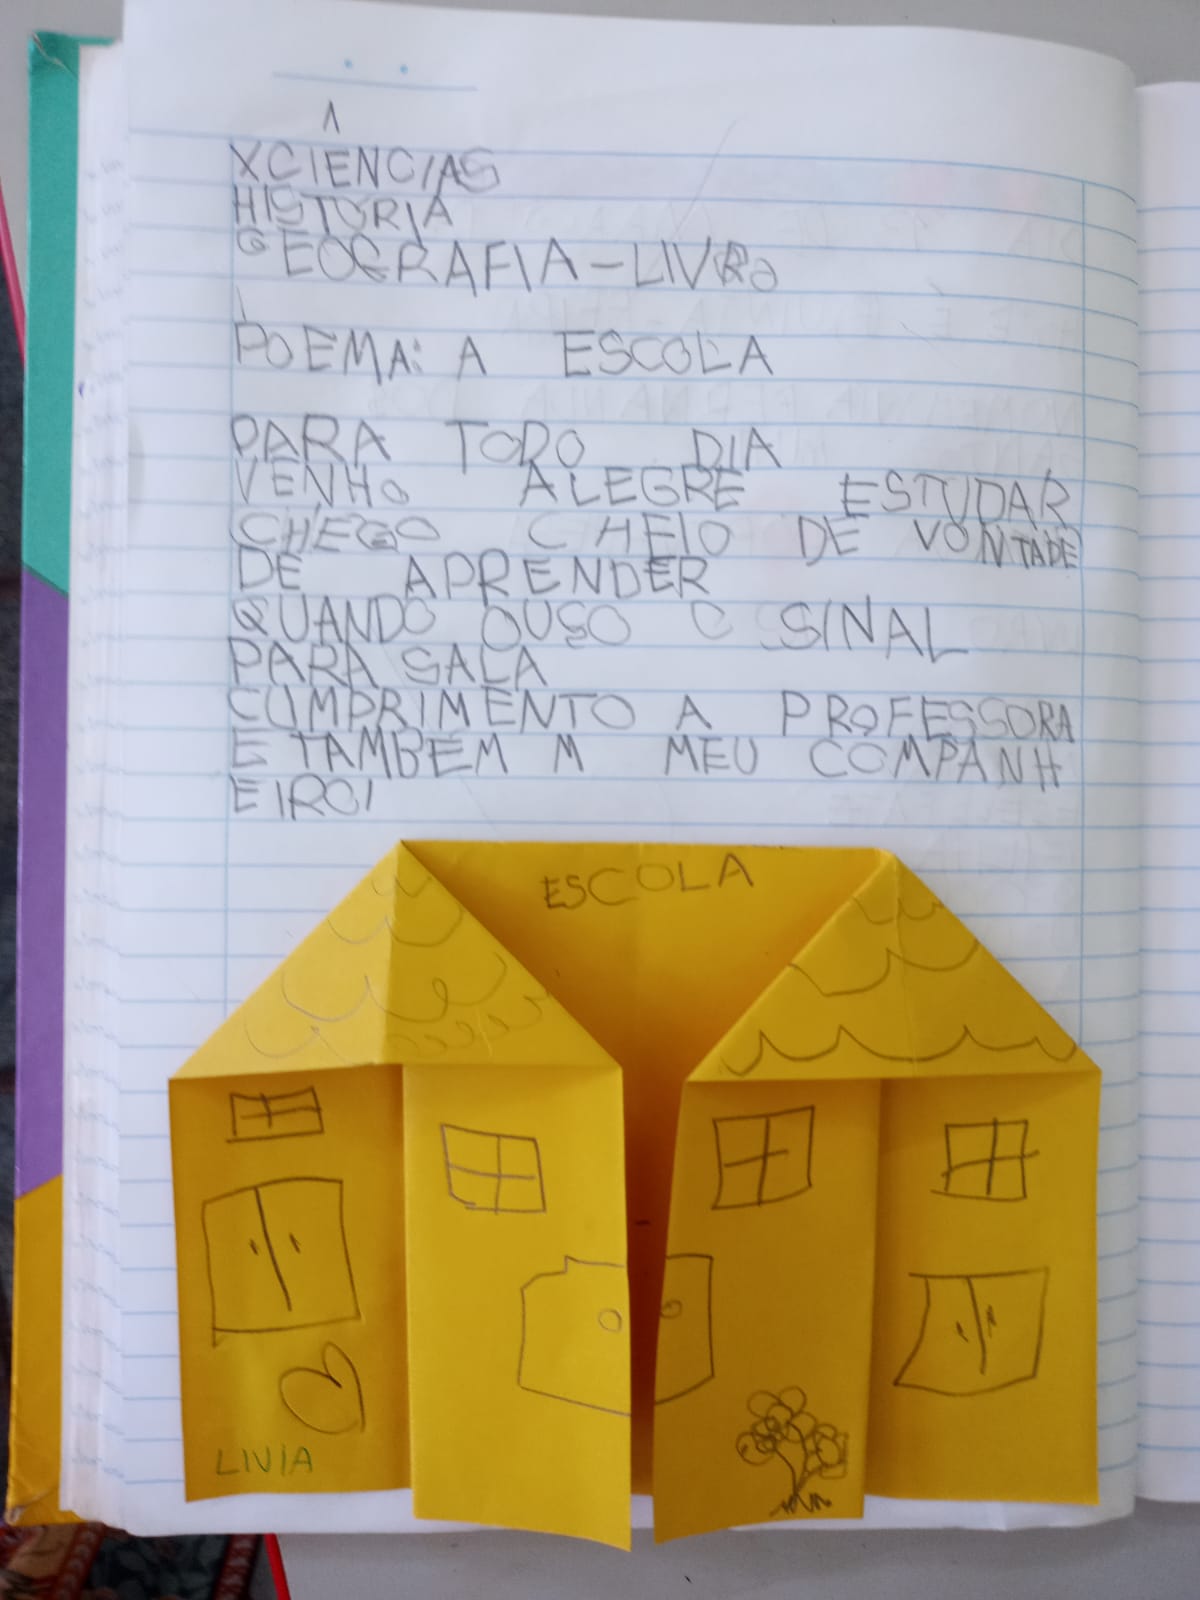 XCIÊNCIAS
HISTÓRIA
GEOGRAFIA-LIVRO
POEMA: A ESCOLA
PARA TODO DIA
VENHO ALEGRE ESTUDAR
CHEGO CHEIO DE VONTADE
DE APRENDER
QUANDO OUSO O SINAL
PARA SALA
CUMPRIMENTO A PROFESSORA
E TAMBÉM M MEU COMPANH
EIRO!
ESCOLA
LIVIA